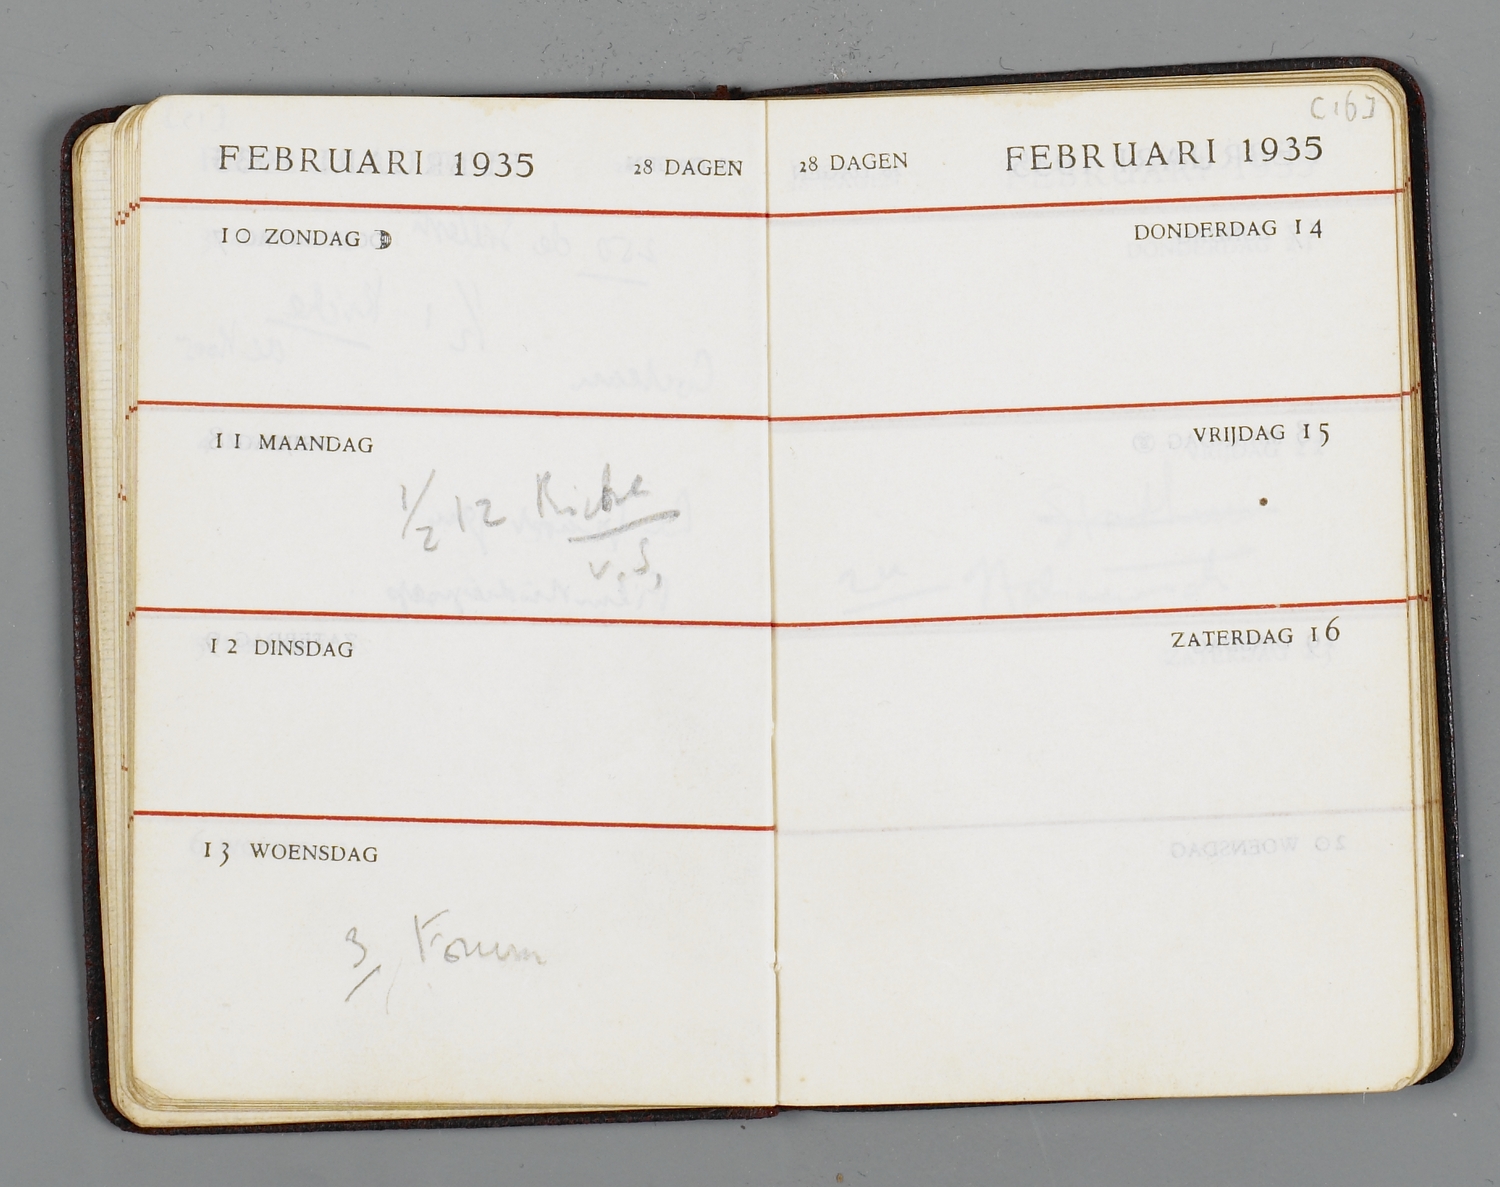 FEBRUARI 1935 28 DAGEN
10 ZONDAG
11 MAANDAG
1/2 12 Riche
v. S,
12 DINSDAG
13 WOENSDAG
3 Forum
[16]
28 DAGEN FEBRUARI 1935
DONDERDAG 14
VRIJDAG 15
ZATERDAG 16